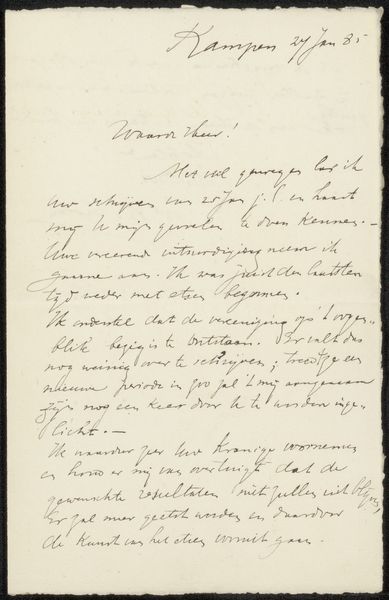 Kampen 27 Jan 85
Waarde Heer!
Met veel genoegen las ik
Uw schrijven van 25 Jan j.l. en haast
mij U mijn gevoelen te doen kennen. —
Uwe vereerende uitnoodiging neem ik
gaarne aan. Ik was juist den laatsten
tijd weder met etsen begonnen.
Ik onderstel dat de vereeniging op 't oogen-
blik bezig is te ontstaan. Er valt dus
nog weinig over te schrijven; treedt ze een
nieuwe periode in zoo zal 't mij aangenaam
zijn nog een keer door U te worden inge-
licht. —
Ik waardeer zeer Uw voornemen
en houd er mij van overtuigd dat de
gewenschte resultaten niet zullen uitblijven,
Er zal meer geëtst worden en daardoor
de Kunst van het etsen vooruit gaan.